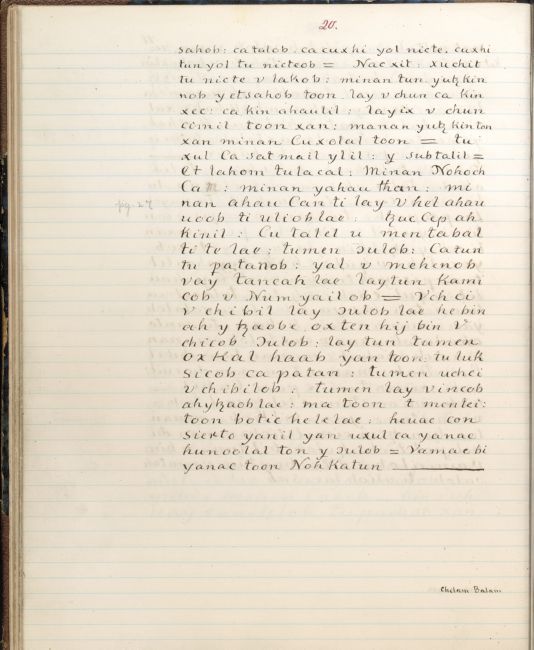 20.
sahob: ca talob. ca cuxhi yol nicte. cuxhi
tun yol tu nicteob = Nacxit: xuchit
tu nicte v lakob: minan tun yutz kin
nob yetsahob toon. lay v chun ca kin
xec: ca kin ahaulil: layix v chun
cimil toon xan: manan yutz kin ton
xan minan Cuxolal toon = tu
xul Ca sat mail ylil: y subtalil =
Et lahom tulacal: Minan Nohoch
Can: minan yahau than: mi
pg 27
nan ahau Can ti lay v hel ahau
uoob ti uliob lae: tzuc Cep ah
kinil: Cu talel u mentabal
ti te lae: tumen Dulob: Catun
tu patanob: yal v mehenob
vay tancah lae laytun Kami
cob v Num yail ob = Vchci
v chibil lay Dulob lae he bin
ah ytzaobe. oxten hij bin V
chicob Dulob: lay tun tumen
oxKal haab yan toon: tu luk
sicob ca patan: tumen uchci
v chibilob: tumen lay vincob
ah ytzaob lae: ma toon t mentei:
toon botic helelae: heuac con
sierto yanil yan uxul ca yanac
hunoolal ton y Dulob = Vamaebi
yanac toon Noh Katun
Chilam Balam